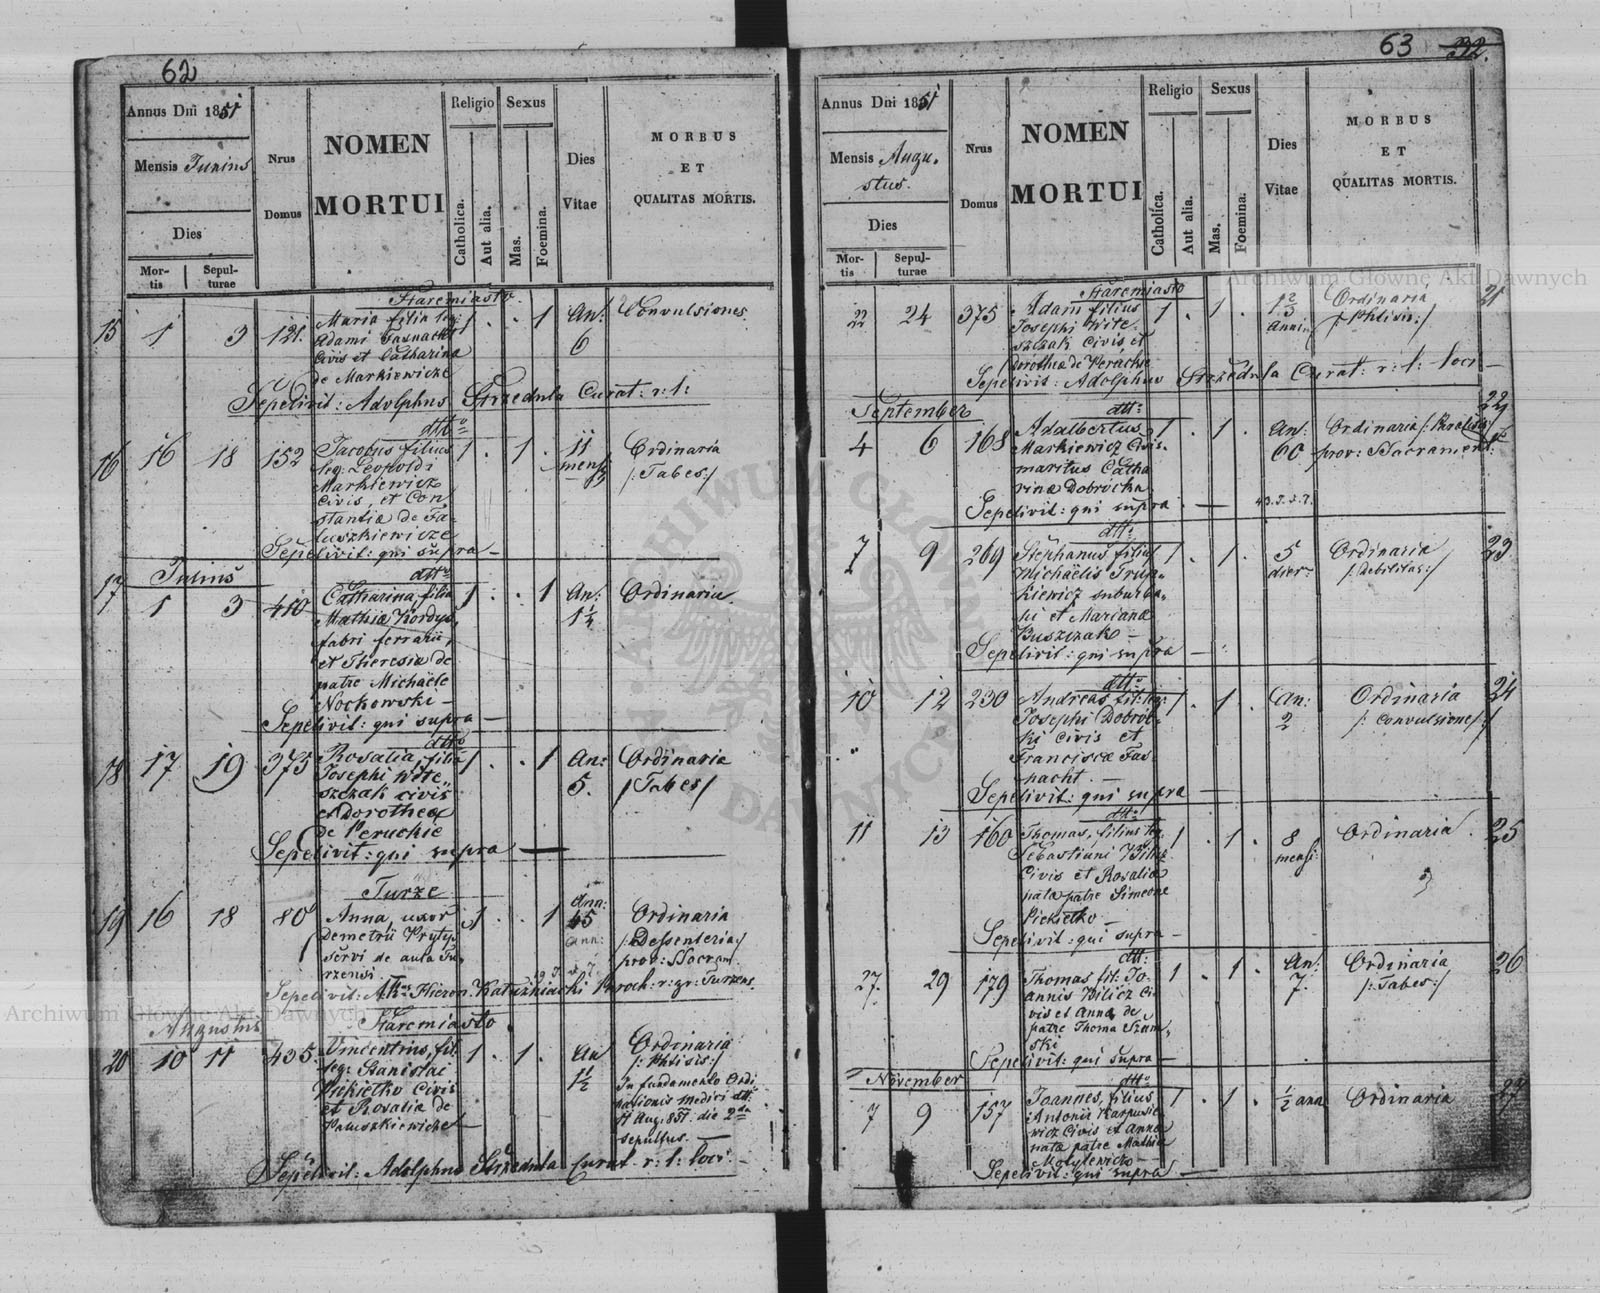 62
Annus Dni 1851
Mensis Junius
Dies
Mor-
tis
Sepul-
turae
Nrus
Domus
NOMEN
MORTUI
Religio
Catholica.
Aut alia.
Sexus
Mas.
Foemina.
Dies
Vitae
MORBUS
ET
QUALITAS MORTIS.
Staremiasto
15 1 3 121. Maria filia leg: 1 . . 1 An: Convulsiones.
Adami Fasnacht 6
Civis et Catharina
de Markiewicze
Sepelivit: Adolphus Strzedula Curat: r: l:
dtto
16 16 18 152 Jacobus filius 1 . 1 . 11 Ordinaria
leg: Leopoldi mens: /:Tabes:/
Markiewicz
Civis et Con
stantia de Pa-
luszkiewicze
Sepelivit: qui supra —
Julius
dtto
17 1 3 410 Catharina, filia 1 . . 1 An: Ordinaria.
Mathiæ Kordys, 1½
fabri ferrarii,
et Theresia de
patre Michaële
Nockowski —
Sepelivit: qui supra —
dtto
18 17 19 375 Rosalia, filia 1 . . 1 An: Ordinaria
Josephi Wite- 5. /Tabes/
szczak civis
et Dorothea
de Peruckie
Sepelivit: qui supra —
Turze
19 16 18 80 Anna, uxor 1 . . 1 45 Ordinaria
Demetrii Prytys ann: /:Dessenteria:/
servi de aula Tu- prov: Sacram:
rzensi
Sepelivit: Hieron. Kaluzniacki Paroch: r: gr: Turzens.
Augustus
Staremiasto
20 10 11 435. Vincentius, fil: 1 . 1 . An Ordinaria
leg: Stanislai 1½ /:Phtisis:/
Piekielko Civis In fundamento Ordi
et Rosalia de nationis medici dtt:
Paluszkiewicze 11 Aug: 851. die 2da
sepultus. —
Sepelivit: Adolphus Strzedula Curat. r: l: loci —
63 32.
Annus Dni 1851
Mensis Augu-
stus.
Dies
Mor-
tis
Sepul-
turae
Nrus
Domus
NOMEN
MORTUI
Religio
Catholica.
Aut alia.
Sexus
Mas.
Foemina.
Dies
Vitae
MORBUS
ET
QUALITAS MORTIS.
Staremiasto
22 24 375 Adam filius 1 . 1 . 1 2/3 Ordinaria 21
Josephi Wite- Anni /:Phtisis:/
szczak Civis et
Dorothea de Peruckie
Sepelivit: Adolphus Strzedula Curat: r: l: loci —
September
dtt:
4 6 168 Adalbertus 1 . 1 . An: Ordinaria /:Paralisis:/ 22
Markiewicz Civis 60 prov: Sacrament:
maritus Catha
rinæ Dobrocka
Sepelivit: qui supra . —
dtt:
7 9 269 Stephanus filius 1 . 1 . 5 Ordinaria 23
Michaëlis Trup- dier: /:Debilitas:/
kiewicz suburba-
ni et Mariana
Buszczak —
Sepelivit: qui supra —
dtt:
10 12 230 Andreas fil: leg: 1 . 1 . An: Ordinaria 24
Josephi Dobroc- 2 /:Convulsiones:/
ki Civis et
Francisca Fas-
nacht. —
Sepelivit: qui supra —
dtt:
11 13 160 Thomas, filius leg: 1 . 1 . 8 Ordinaria. 25
Sebastiani Bilicz mens:
Civis et Rosalia
nata patre Simeone
Piekielko —
Sepelivit: qui supra —
dtt:
27. 29 179 Thomas fil: Jo- 1 . 1 . An: Ordinaria 26
annis Bilicz Ci- 7. /:Tabes:/
vis et Anna de
patre Thoma Szem-
ski
Sepelivit: qui supra —
November
dtto
7 9 157 Joannes, filius 1 . 1 . ½ ana Ordinaria 27
Antonii Karpowi-
wicz Civis et Anna
nata patre Mathia
Motylewicz —
Sepelivit: qui supra —
Archiwum Główne Akt Dawnych
Archiwum Główne Akt Dawnych
ARCHIWUM GŁÓWNE AKT DAWNYCH